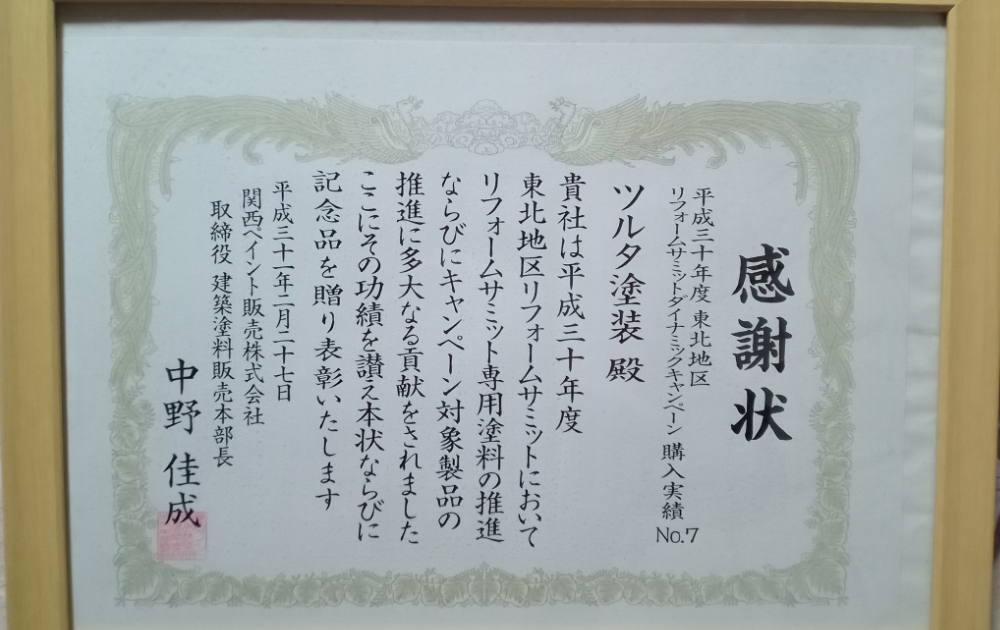 感謝状
平成三十年度 東北地区
リフォームサミットダイナミックキャンペーン 購入実績
No.7
ツルタ塗装 殿
貴社は平成三十年度
東北地区リフォームサミットにおいて
リフォームサミット専用塗料の推進
ならびにキャンペーン対象製品の
推進に多大なる貢献をされました
ここにその功績を讃え本状ならびに
記念品を贈り表彰いたします
平成三十一年二月二十七日
関西ペイント販売株式会社
取締役 建築塗料販売本部長
中野 佳成